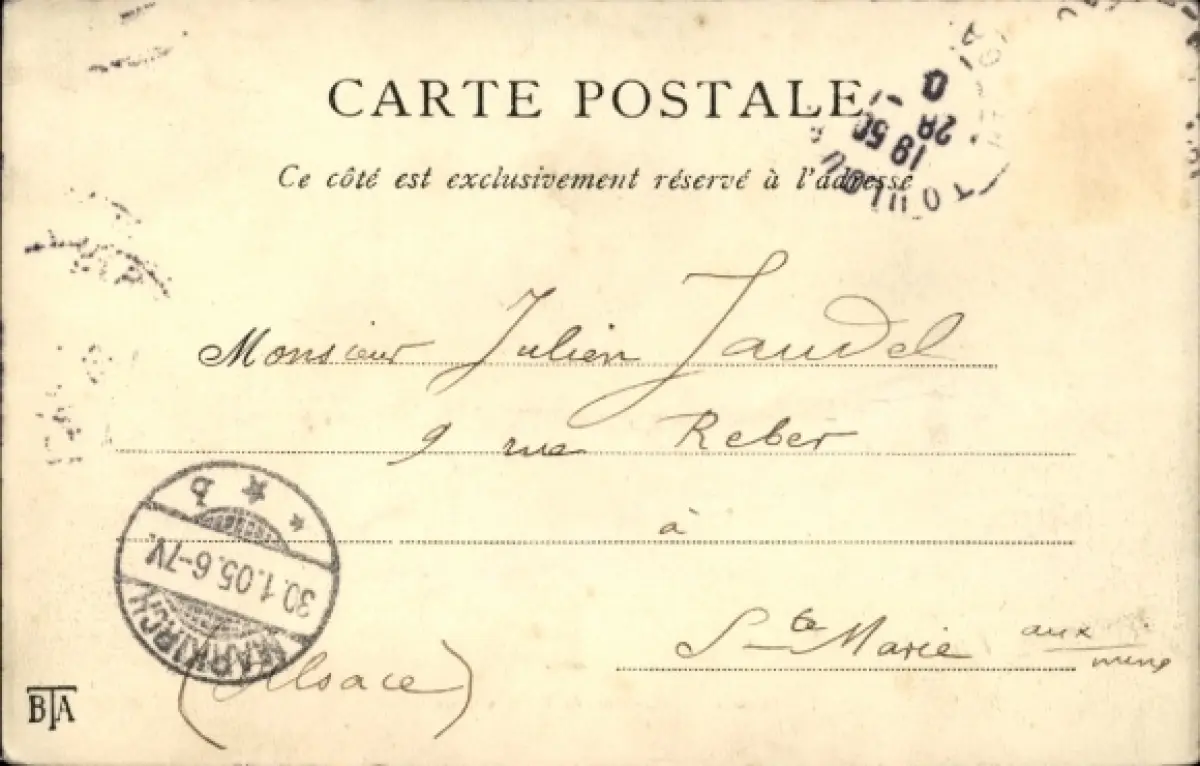 CARTE POSTALE
Ce côté est exclusivement réservé à l'adresse
TOULON
19 50
28
Monsieur Julien Jaudel
9 rue Reber
à
Ste Marie aux mines
(Alsace)
MARKIRCH
30.1.05.6-7V.
b
BTA